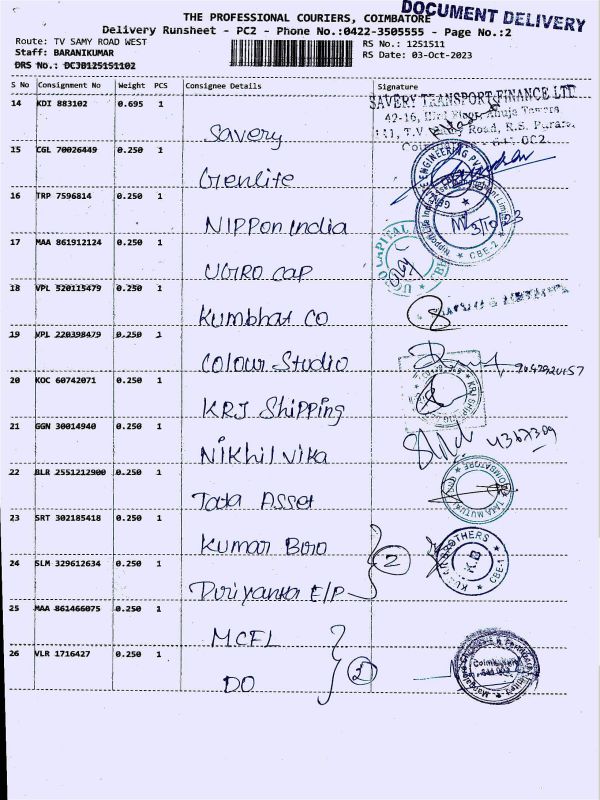 DOCUMENT DELIVERY
THE PROFESSIONAL COURIERS, COIMBATORE
Delivery Runsheet - PC2 - Phone No.:0422-3505555 - Page No.:2
Route: TV SAMY ROAD WEST
RS No.: 1251511
Staff: BARANIKUMAR
RS Date: 03-Oct-2023
DRS No.: DCJB125151102
S No Consignment No Weight PCS Consignee Details Signature
14 KDI 883102 0.695 1 Savery
SAVERY TRANSPORT FINANCE LTD
42-16, Towers
T.V Road, R.S. Puram,
15 CGL 70026449 0.250 1 Genlite
ENGINEERING
16 TRP 7596814 0.250 1 NIPPon India
Nippon Life India CBE-2
17 MAA 861912124 0.250 1 UGRO cap
UGRO CAPITAL
18 VPL 520115479 0.250 1 Kumbhat CO
19 VPL 220398479 0.250 1 Colour Studio
20 KOC 60742071 0.250 1 KRJ Shipping
KRJ SHIPPING
21 GGN 30014940 0.250 1 Nikhil vika
22 BLR 2551212900 0.250 1 Tata Asset
TATA MUTUAL COIMBATORE
23 SRT 302185418 0.250 1 Kumar Bro
2
BROTHERS
K.B
CBE-1
24 SLM 329612634 0.250 1 Diriyanka E/P
25 MAA 861466075 0.250 1 MCFL
2
26 VLR 1716427 0.250 1 DO
Coimbatore